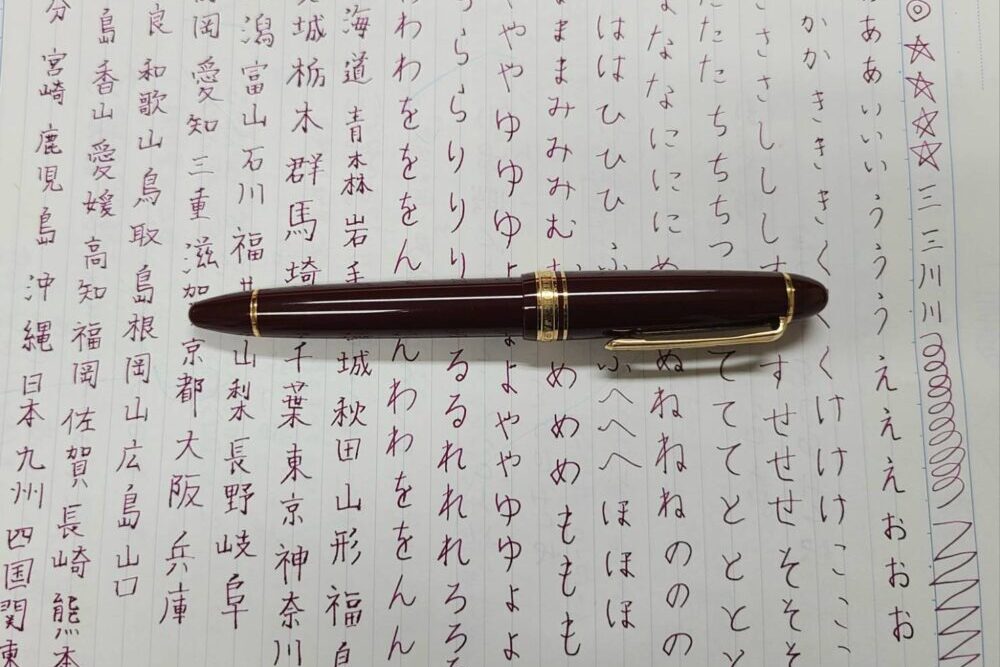 ◎☆☆☆☆三三川川
ああいいいうううえええおおお
かかきききくくくけけけこここ
さささしししすすせせせそそそ
たたちちちつてててととと
なななにににぬねねねののの
はははひひひふふへへへほほほ
まままみみみむめめめももも
ややゆゆゆよよよややゆゆよよ
らららりりりるるれれれろろ
わわをををんんわわををんん
海道 青森 岩手 城 秋田 山形 福
城 栃木 群馬 埼 千葉 東京 神奈川
潟 富山 石川 福井 山梨 長野 岐阜
岡 愛知 三重 滋加 京都 大阪 兵庫
良 和歌山 鳥取 島根 岡山 広島 山口
島 香山 愛媛 高知 福岡 佐賀 長崎 熊本
分 宮崎 鹿児島 沖縄 日本 九州 四国 関東